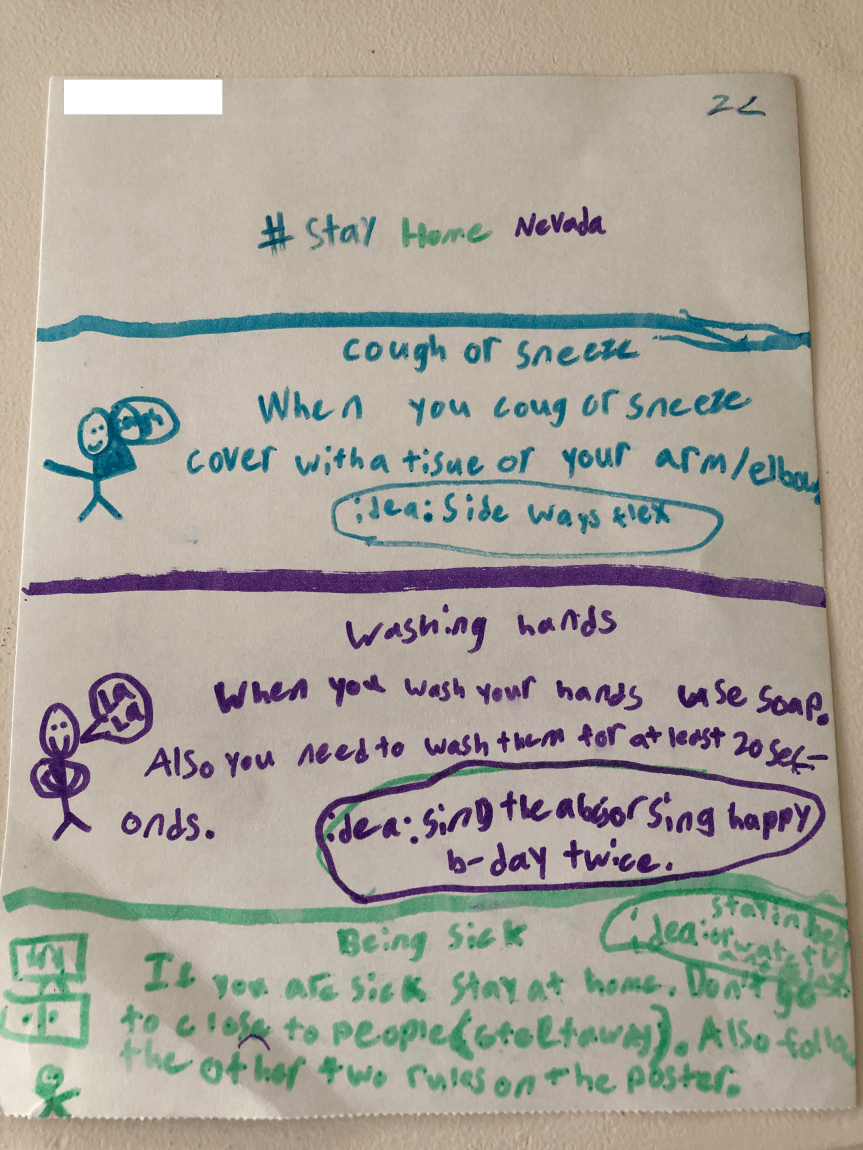 2L
# Stay Home Nevada
cough or sneeze
When you coug or sneeze
cover with a tisue or your arm/elbow
idea: Side ways flex
Washing hands
La
La
When you wash your hands use soap.
Also you need to wash them for at least 20 sec-
onds.
idea: sing the abc or Sing happy
b-day twice.
Being Sick
stay in bed
idea: or watch tv
and
If you are sick stay at home. Don't go
to close to people (6 feet away). Also follow
the other two rules on the poster.